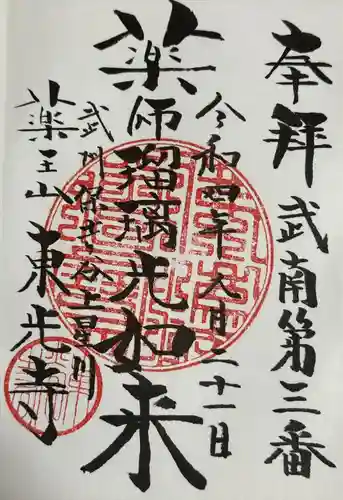 奉拝 武南第三番
令和四年 八月二十一日
薬師瑠璃光如来
武州保土ヶ谷上星川
薬王山 東光寺